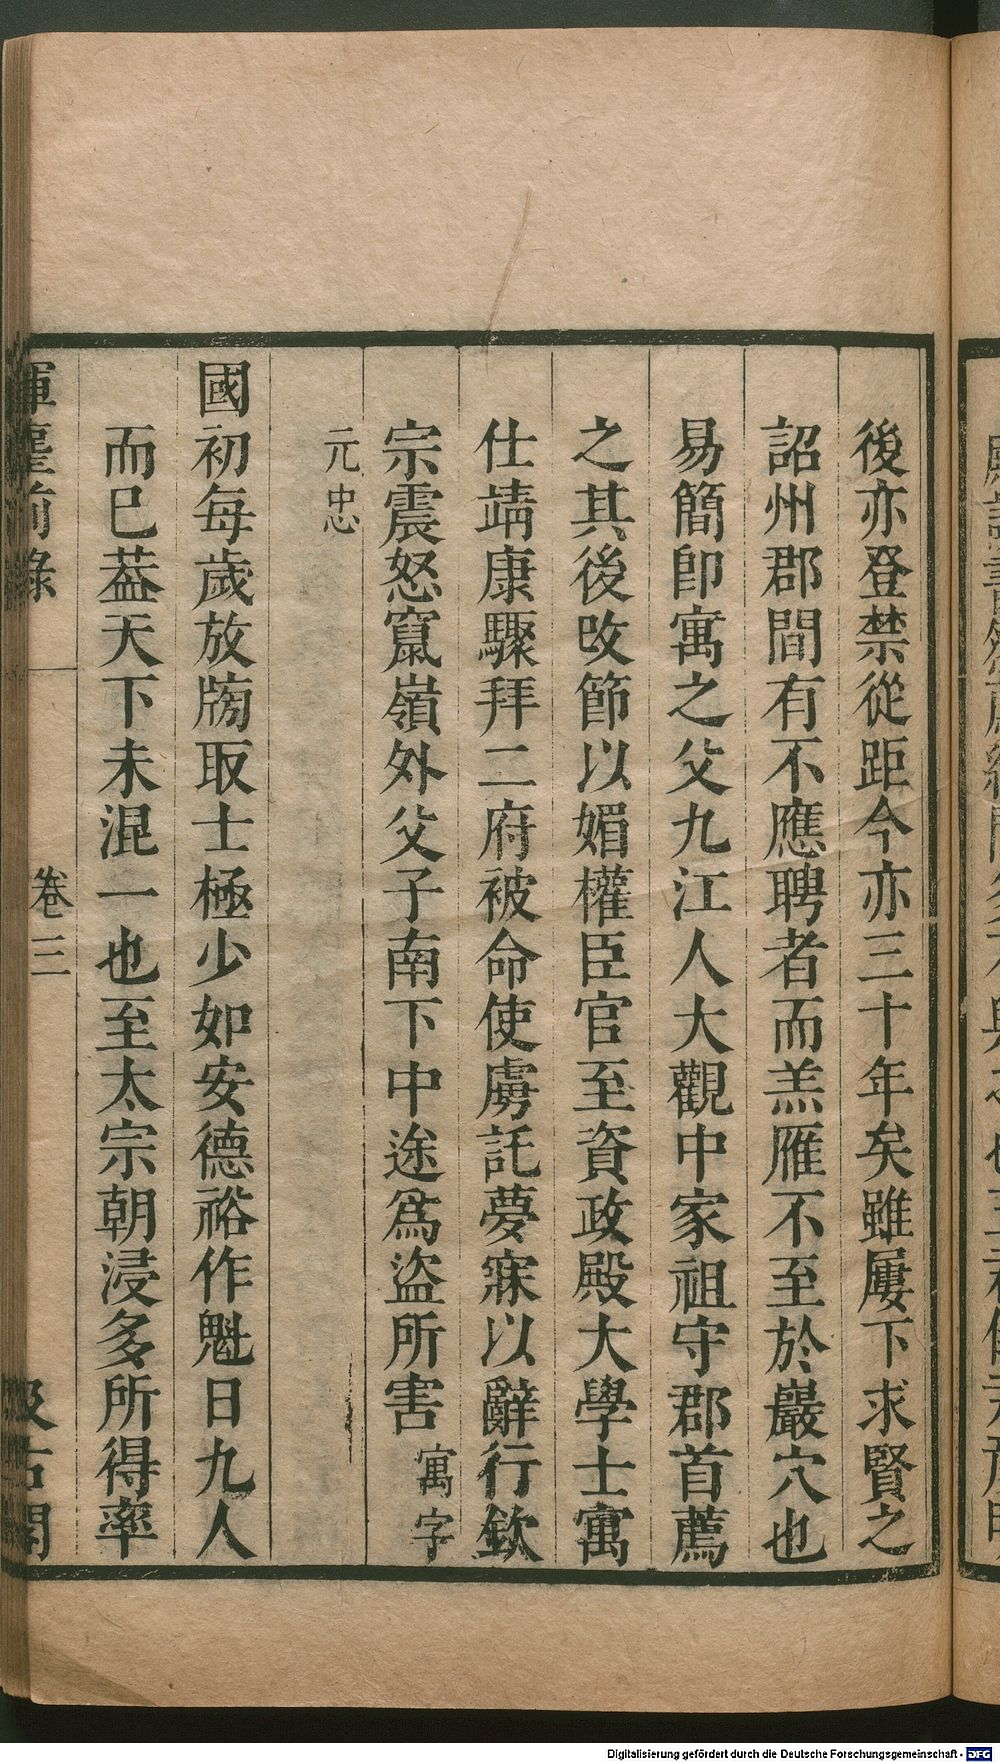 後亦登禁從距今亦三十年矣雖屢下求賢之
詔州郡間有不應聘者而羔雁不至於巖穴也
易簡卽寓之父九江人大觀中家祖守郡首薦
之其後改節以媚權臣官至資政殿大學士寓
仕靖康驟拜二府被命使虜託夢寐以辭行欽
宗震怒竄嶺外父子南下中途爲盜所害寓字
元忠
國初每歲放牓取士極少如安德裕作魁日九人
而巳葢天下未混一也至太宗朝浸多所得率
揮麈前錄
卷三
汲古閣
Digitalisierung gefördert durch die Deutsche Forschungsgemeinschaft - DFG